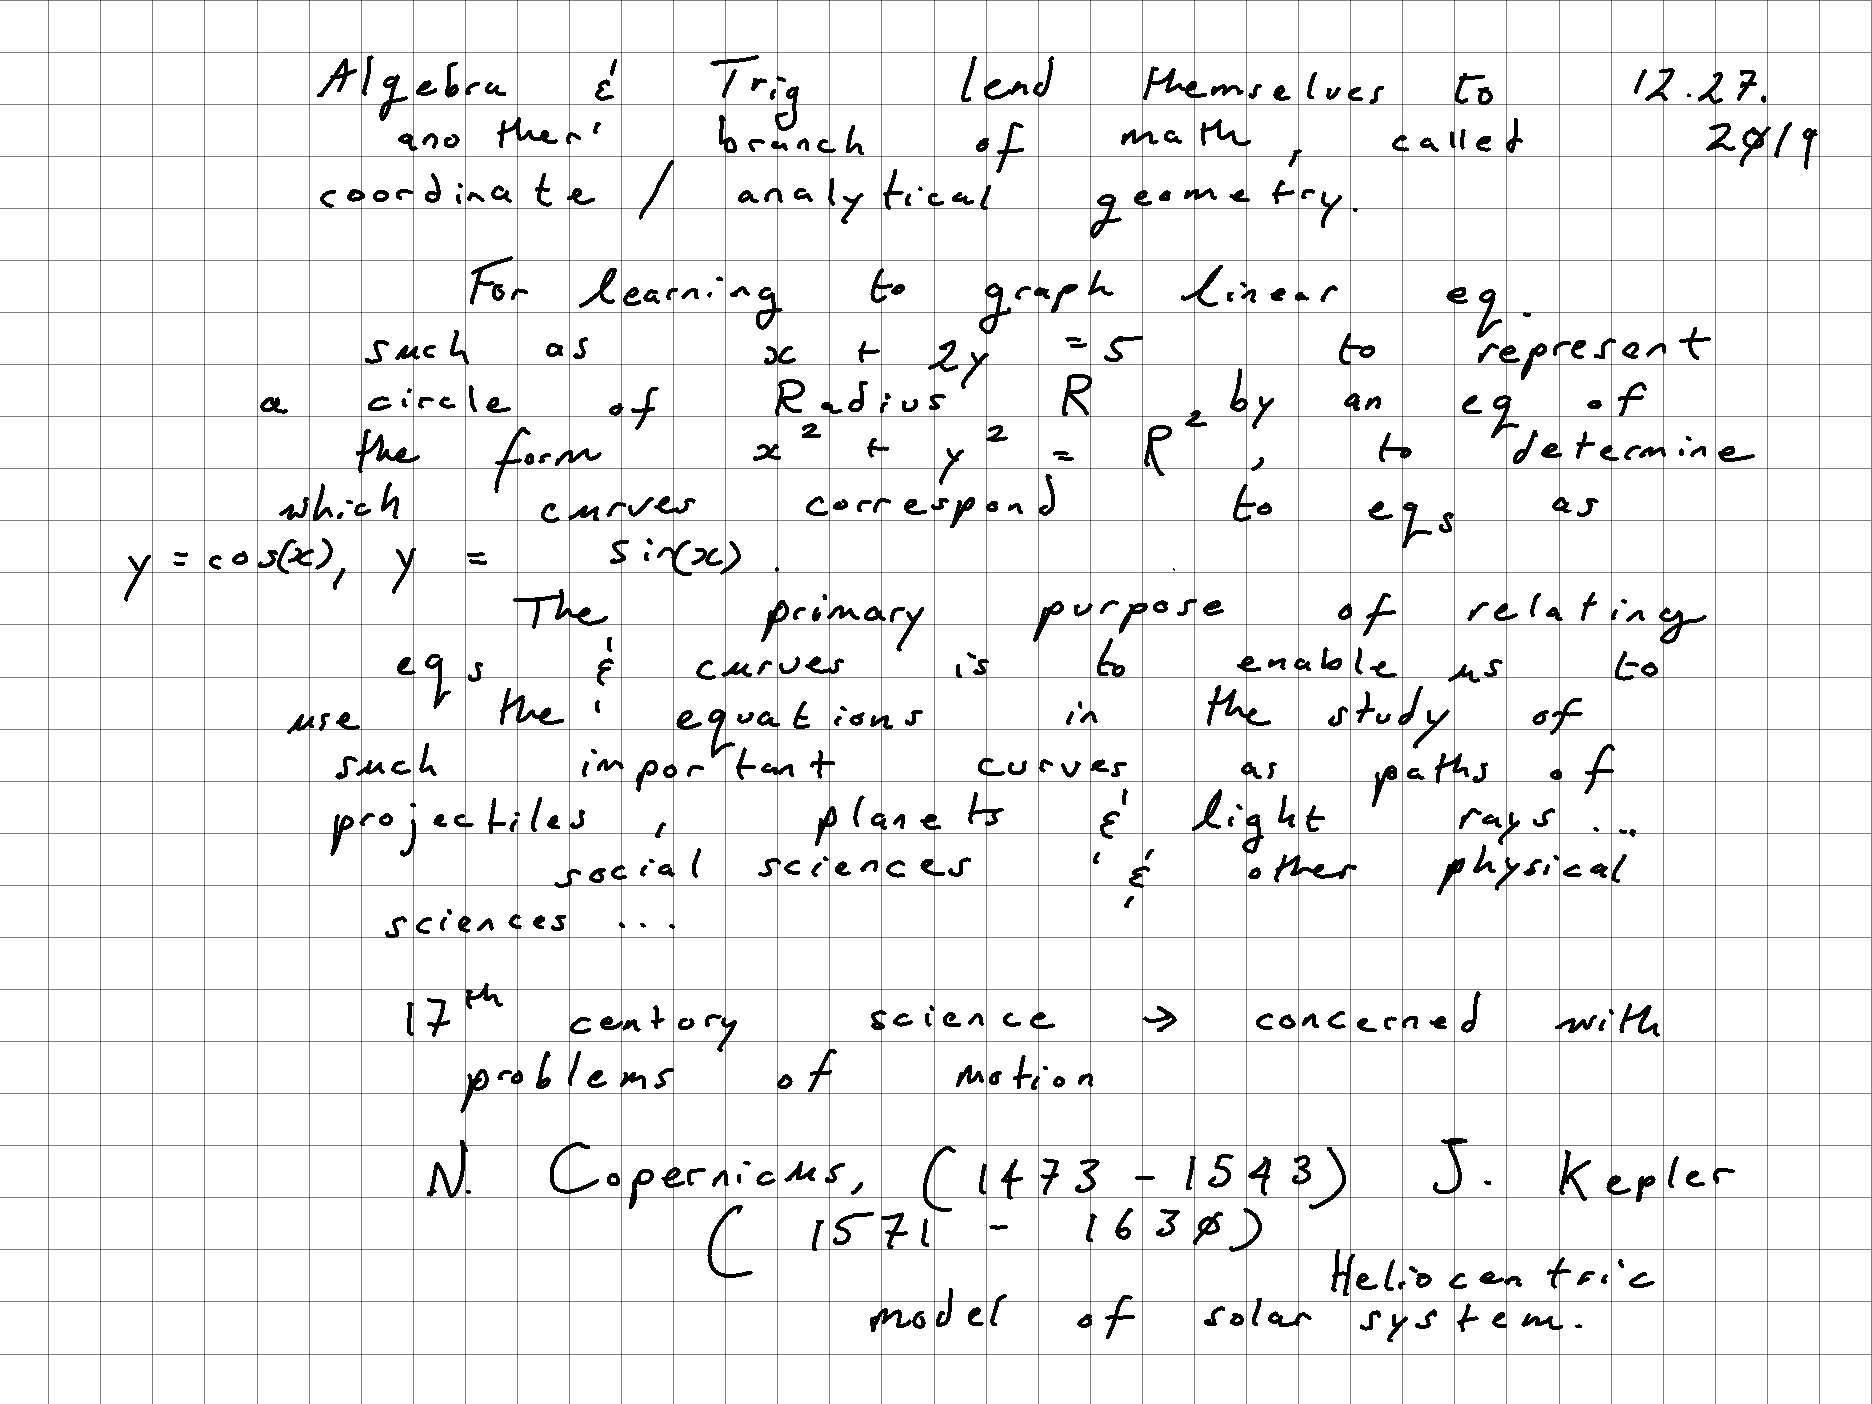 Algebra & Trig lend themselves to 12.27.
another branch of math, called 2019
coordinate / analytical geometry.
For learning to graph linear eq.
such as x + 2y = 5 to represent
a circle of Radius R by an eq of
the form x² + y² = R², to determine
which curves correspond to eqs as
y = cos(x), y = sin(x).
The primary purpose of relating
eqs & curves is to enable us to
use the equations in the study of
such important curves as paths of
projectiles, planets & light rays ...
social sciences & other physical
sciences ...
17th century science → concerned with
problems of motion
N. Copernicus, (1473 - 1543) J. Kepler
(1571 - 1630)
Heliocentric
model of solar system.